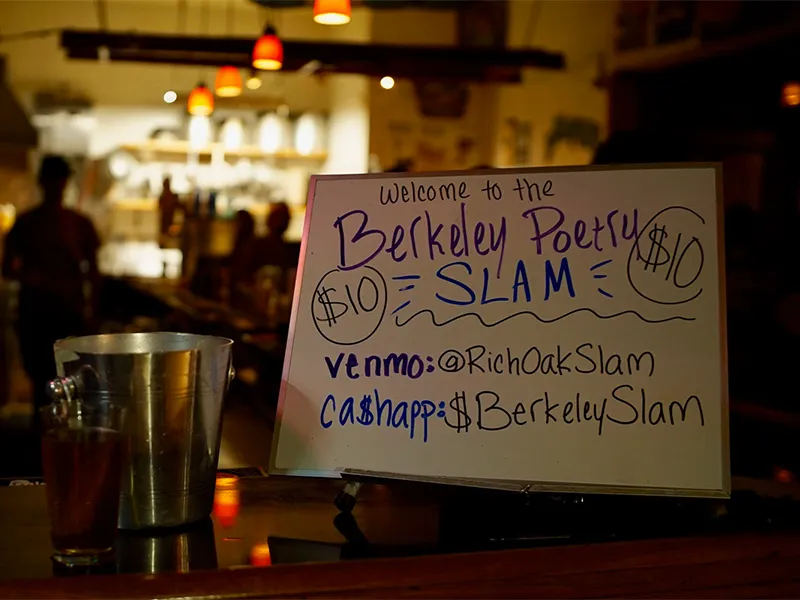 Welcome to the
Berkeley Poetry
$10 SLAM $10
venmo: @RichOakSlam
ca$happ: $BerkeleySlam